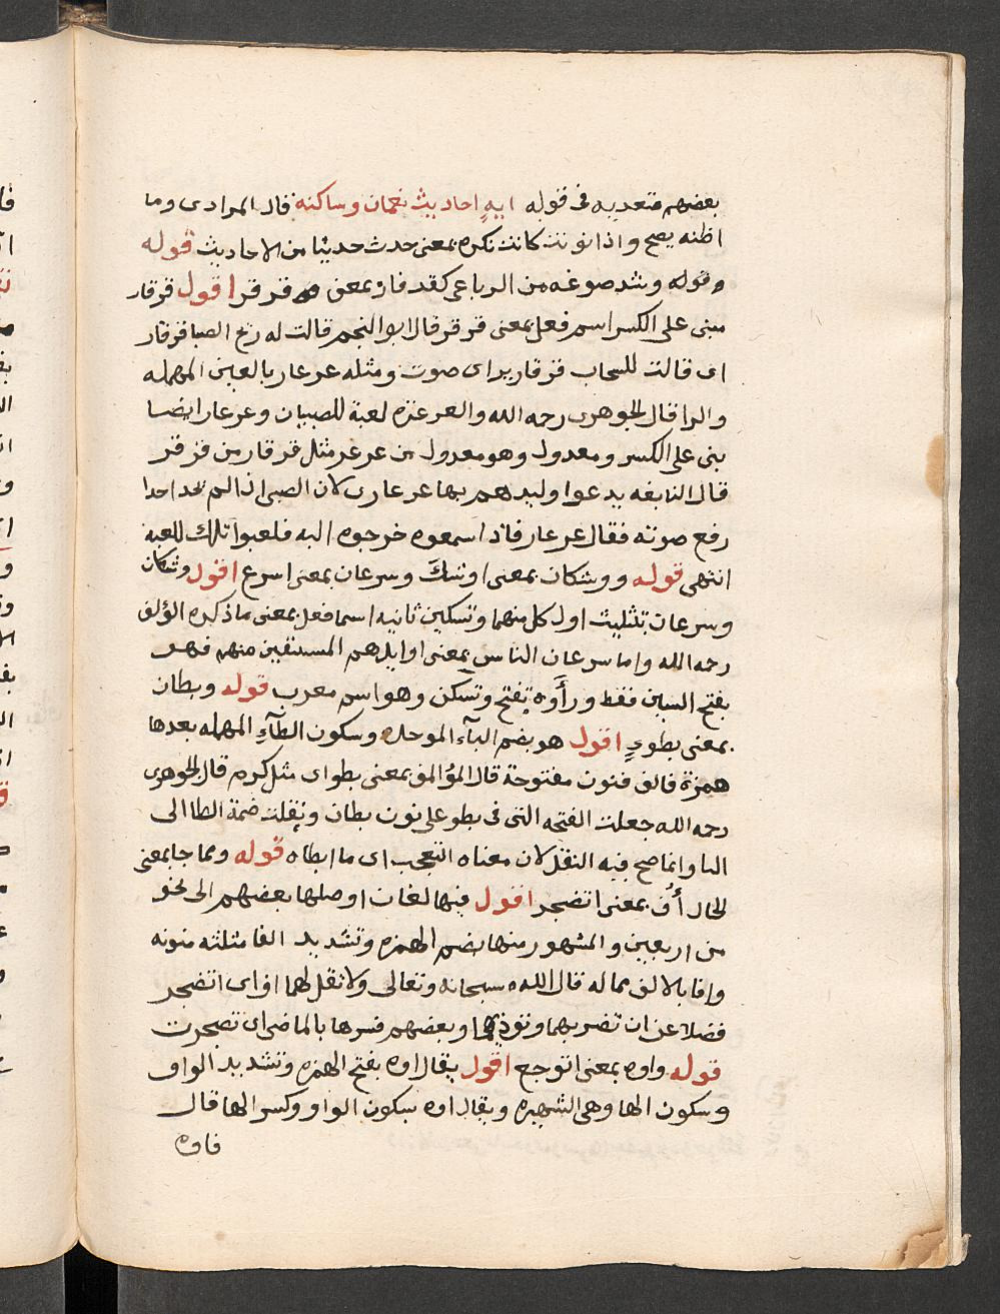 بعضهم متعديه فى قوله ايهٍ احاديث نعمان وساكنه قال المرادى وما
اظنه يصح واذا نونت كانت نكره بمعنى حدث حديثا من الاحاديث قوله
وقوله وشد صوغه من الرباعى كقد قار بمعنى قرقر اقول قرقار
مبنى على الكسر اسم فعل بمعنى قرقر قال ابو النجم قالت له ريح الصبا قرقار
اى قالت للسحاب قرقار يراى صوت ومثله عرعار بالعين المهمله
والرا قال الجوهرى رحمه الله والعرعره لعبة للصبيان وعرعار ايضا
بنى على الكسر ومعدول وهو معدول من عرعر مثل قرقار من قرقر
قال النابغه يدعوا وليدهم بها عرعار لان الصبى اذا لم يجد احدا
رفع صوته فقال عرعار فاذا سمعوه خرجوه اليه فلعبوا تلك اللعبه
انتهى قوله ووشكان بمعنى اوشك وسرعان بمعنى اسرع اقول وشكان
وسرعان بتثليث اول كل منهما وتسكين ثانيه اسما فعل بمعنى ما ذكره المؤلف
رحمه الله واما سرعان الناس بمعنى اوايلهم المستبقين منهم فهو
بفتح السين فقط وراؤه تفتح وتسكن وهو اسم معرب قوله وبطان
بمعنى بطوءٍ اقول هو بضم البآء الموحده وسكون الطآءِ المهمله بعدها
همزة فالف فنون مفتوحة قال المؤالف بمعنى بطواى مثل كرم قال الجوهرى
رحمه الله جعلت الفتحه التى فى بطو على نون بطان ونقلت ضمة الطا الى
البا وانما صح فيه النقل لان معناه التعجب اى ما ابطاه قوله ومما جا بمعنى
الحال أُف بمعنى اتضجر اقول فيها لغات اوصلها بعضهم الى نحو
من اربعين والمشهور منها بضم الهمزه وتشديد الفا مثلثه منونه
وافا بالالف مماله قال الله سبحانه وتعالى ولا تقل لهما اف اى اتضجر
فضلا عن ان تضربهما وتوذيهما وبعضهم فسرها بالماضى اى تضجرت
قوله واوه بمعنى اتوجع اقول يقال اوه بفتح الهمزه وتشديد الواو
وسكون الها وهى الشهيره ويقال اوه بسكون الواو وكسر الها قال
فاوه